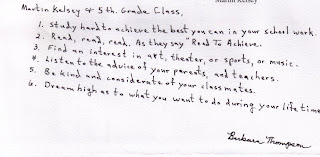 Martin Kelsey
Martin Kelsey & 5th. Grade Class,
1. Study hard to achieve the best you can in your school work.
2. Read, read, read. As they say "Read To Achieve.
3. Find an interest in art, theater, or sports, or music.
4. Listen to the advice of your parents, and teachers.
5. Be kind and considerate of your classmates.
6. Dream high as to what you want to do during your life time
Barbara Thompson